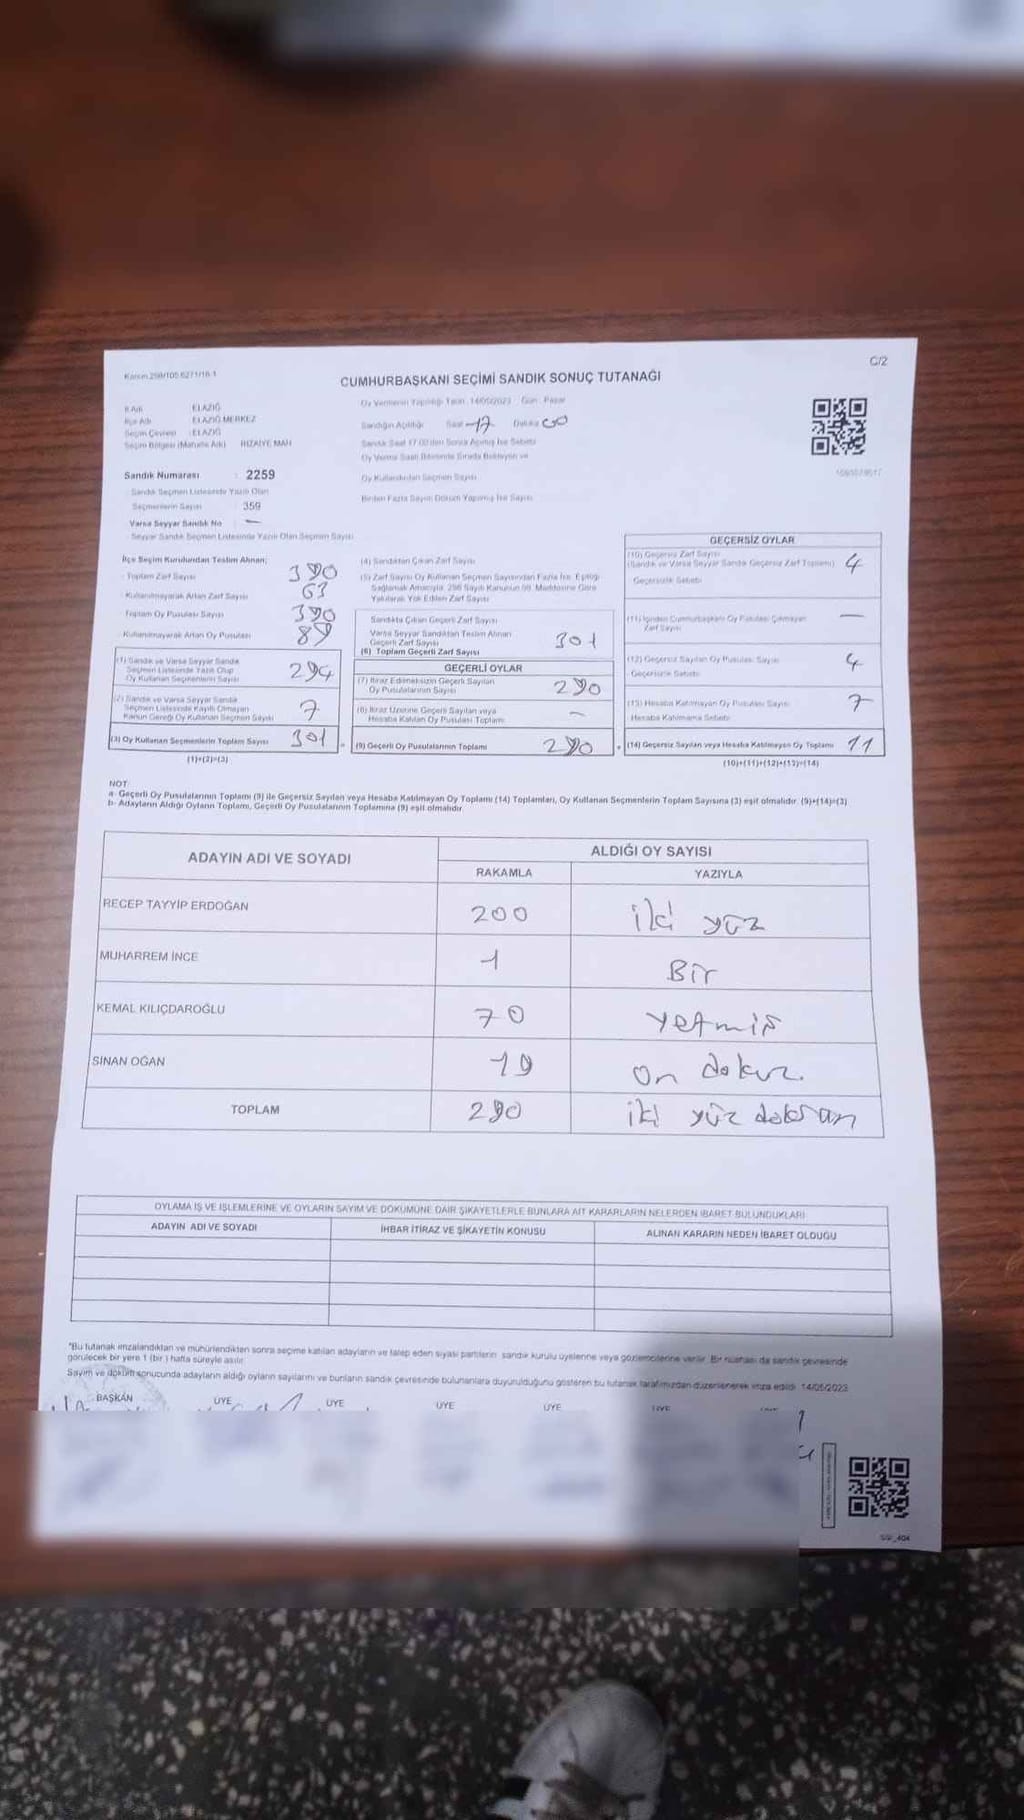 C/2
CUMHURBAŞKANI SEÇİMİ SANDIK SONUÇ TUTANAĞI
İl Adı : ELAZIĞ
İlçe Adı : ELAZIĞ MERKEZ
Seçim Çevresi : ELAZIĞ
Seçim Bölgesi (Mahalle Adı) : RIZAİYE MAH
Sandık Numarası : 2259
Sandık Seçmen Listesinde Yazılı Olan
Seçmenlerin Sayısı : 359
Varsa Seyyar Sandık No : —
Seyyar Sandık Seçmen Listesinde Yazılı Olan Seçmen Sayısı
Oy Vermenin Yapıldığı Tarih: 14/05/2023 Gün: Pazar
Sandığın Açıldığı Saat 17 Dakika 00
Sandık Saat 17.00'den Sonra Açılmış İse Sebebi
Oy Verme Saati Bitiminde Sırada Bekleyen ve
Oy Kullandırılan Seçmen Sayısı
Birden Fazla Sayım Döküm Yapılmış İse Sayısı
İlçe Seçim Kurulundan Teslim Alınan;
Toplam Zarf Sayısı 390
Kullanılmayarak Artan Zarf Sayısı 63
Toplam Oy Pusulası Sayısı 390
Kullanılmayarak Artan Oy Pusulası 89
(1) Sandık ve Varsa Seyyar Sandık
Seçmen Listesinde Yazılı Olup
Oy Kullanan Seçmenlerin Sayısı 294
(2) Sandık ve Varsa Seyyar Sandık
Seçmen Listesinde Kayıtlı Olmayan
Kanun Gereği Oy Kullanan Seçmen Sayısı 7
(3) Oy Kullanan Seçmenlerin Toplam Sayısı 301
(1)+(2)=(3)
(4) Sandıktan Çıkan Zarf Sayısı
(5) Zarf Sayısı Oy Kullanan Seçmen Sayısından Fazla İse, Eşitliği
Sağlamak Amacıyla, 298 Sayılı Kanunun 98. Maddesine Göre
Yakılarak Yok Edilen Zarf Sayısı
Sandıkta Çıkan Geçerli Zarf Sayısı
Varsa Seyyar Sandıktan Teslim Alınan
Geçerli Zarf Sayısı
(6) Toplam Geçerli Zarf Sayısı 301
GEÇERLİ OYLAR
(7) İtiraz Edilmeksizin Geçerli Sayılan
Oy Pusulalarının Sayısı 290
(8) İtiraz Üzerine Geçerli Sayılan veya
Hesaba Katılan Oy Pusulası Toplamı –
(9) Geçerli Oy Pusulalarının Toplamı 290
GEÇERSİZ OYLAR
(10) Geçersiz Zarf Sayısı
(Sandık ve Varsa Seyyar Sandık Geçersiz Zarf Toplamı) 4
Geçersizlik Sebebi
(11) İçinden Cumhurbaşkanı Oy Pusulası Çıkmayan
Zarf Sayısı —
(12) Geçersiz Sayılan Oy Pusulası Sayısı 4
Geçersizlik Sebebi
(13) Hesaba Katılmayan Oy Pusulası Sayısı 7
Hesaba Katılmama Sebebi
(14) Geçersiz Sayılan veya Hesaba Katılmayan Oy Toplamı 11
(10)+(11)+(12)+(13)=(14)
NOT:
a- Geçerli Oy Pusulalarının Toplamı (9) ile Geçersiz Sayılan veya Hesaba Katılmayan Oy Toplamı (14) Toplamları, Oy Kullanan Seçmenlerin Toplam Sayısına (3) eşit olmalıdır. (9)+(14)=(3)
b- Adayların Aldığı Oyların Toplamı, Geçerli Oy Pusulalarının Toplamına (9) eşit olmalıdır.
ADAYIN ADI VE SOYADI ALDIĞI OY SAYISI
RAKAMLA YAZIYLA
RECEP TAYYİP ERDOĞAN 200 iki yüz
MUHARREM İNCE 1 Bir
KEMAL KILIÇDAROĞLU 70 yetmiş
SİNAN OĞAN 19 on dokuz
TOPLAM 290 iki yüz doksan
OYLAMA İŞ VE İŞLEMLERİNE VE OYLARIN SAYIM VE DÖKÜMÜNE DAİR ŞİKAYETLERLE BUNLARA AİT KARARLARIN NELERDEN İBARET BULUNDUKLARI
ADAYIN ADI VE SOYADI İHBAR İTİRAZ VE ŞİKAYETİN KONUSU ALINAN KARARIN NEDEN İBARET OLDUĞU
*Bu tutanak imzalandıktan ve mühürlendikten sonra seçime katılan adayların ve talep eden siyasi partilerin sandık kurulu üyelerine veya gözlemcilerine verilir. Bir nüshası da sandık çevresinde
görülecek bir yere 1 (bir) hafta süreyle asılır.
Sayım ve döküm sonucunda adayların aldığı oyların sayılarını ve bunların sandık çevresinde bulunanlara duyurulduğunu gösteren bu tutanak tarafımızdan düzenlenerek imza edildi. 14/05/2023
BAŞKAN ÜYE ÜYE ÜYE ÜYE ÜYE